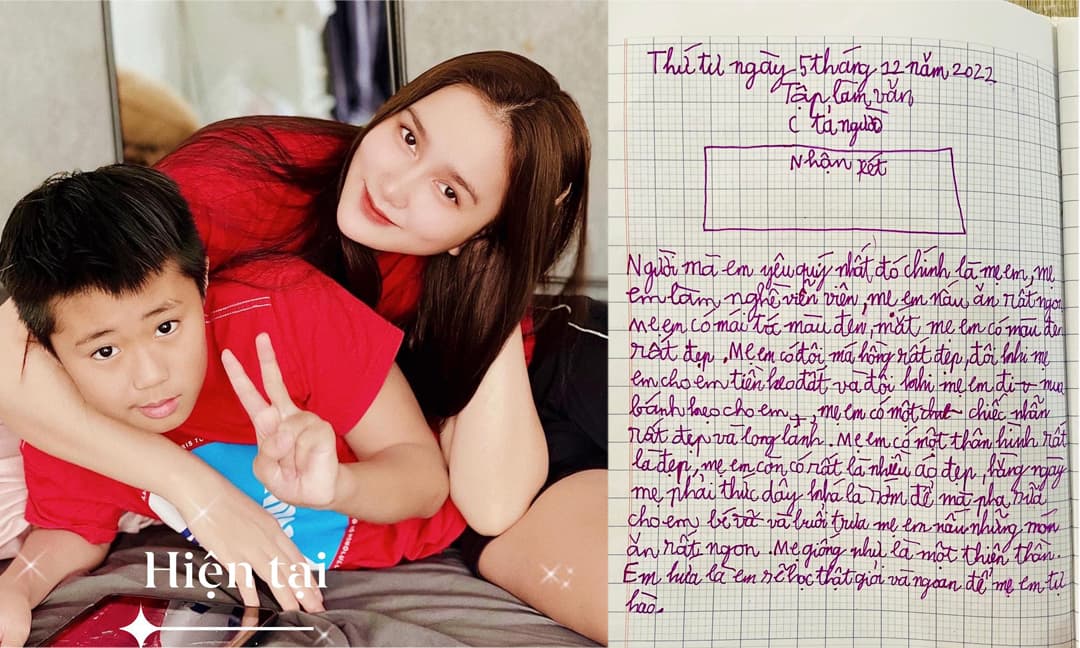 Hiện tại
Thứ tư ngày 5 tháng 12 năm 2022
Tập làm văn
C tả người
Nhận xét
Người mà em yêu quý nhất đó chính là mẹ em, mẹ
em làm nghề viễn viên, mẹ em nấu ăn rất ngon
Mẹ em có mái tóc màu đen, mắt mẹ em có màu đen
rất đẹp. Mẹ em có đôi má hồng rất đẹp, đôi khi mẹ
em cho em tiền heo đất và đôi khi mẹ em đi mua
bánh kẹo cho em, mẹ em có một chiếc nhẫn
rất đẹp và long lanh. Mẹ em có một thân hình rất
là đẹp, mẹ em còn có rất là nhiều áo đẹp, hằng ngày
mẹ phải thức dậy khá là sớm để mà pha sữa
cho em bé và buổi trưa mẹ em nấu những món
ăn rất ngon. Mẹ giống như là một thiên thần.
Em hứa là em sẽ học thật giỏi và ngoan để mẹ em tự
hào.